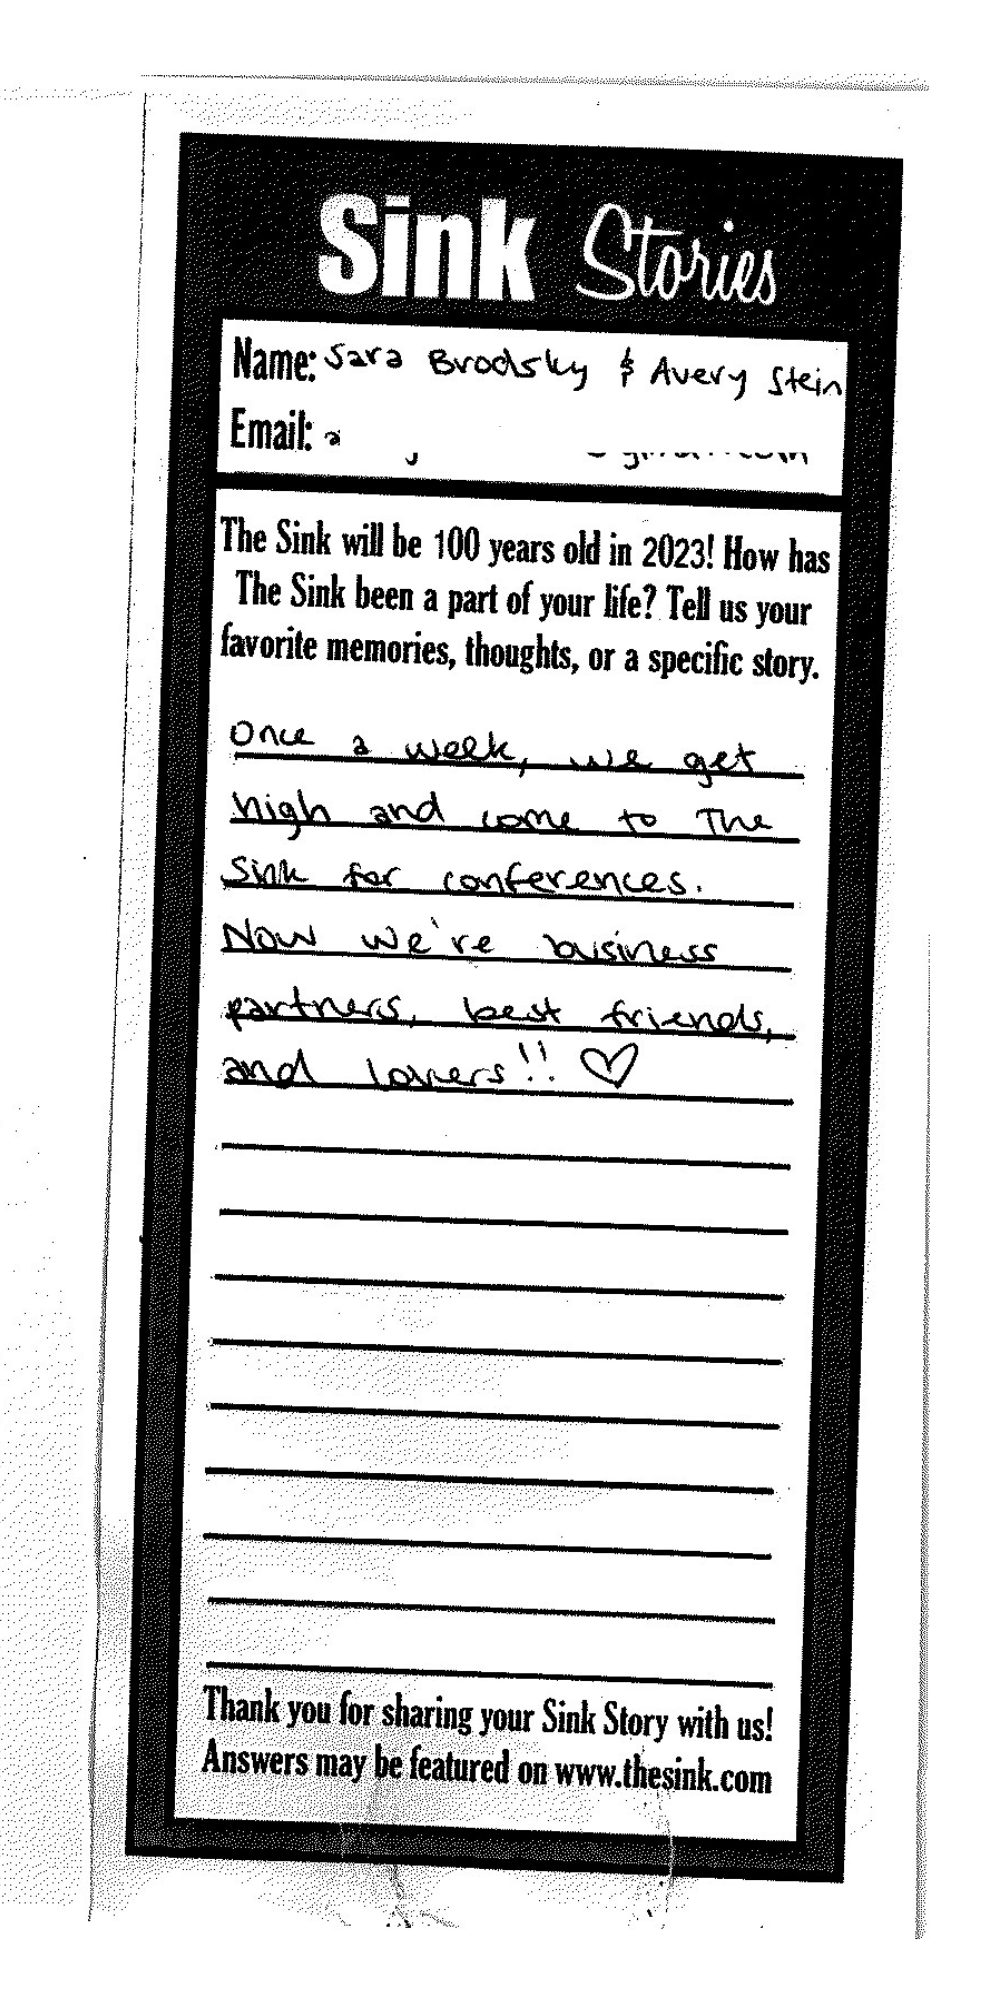 Sink Stories
Name: Sara Brodsky & Avery Stein
Email: a
The Sink will be 100 years old in 2023! How has
The Sink been a part of your life? Tell us your
favorite memories, thoughts, or a specific story.
Once a week, we get
high and come to The
Sink for conferences.
Now we're business
partners, best friends,
and lovers!! ♡
Thank you for sharing your Sink Story with us!
Answers may be featured on www.thesink.com